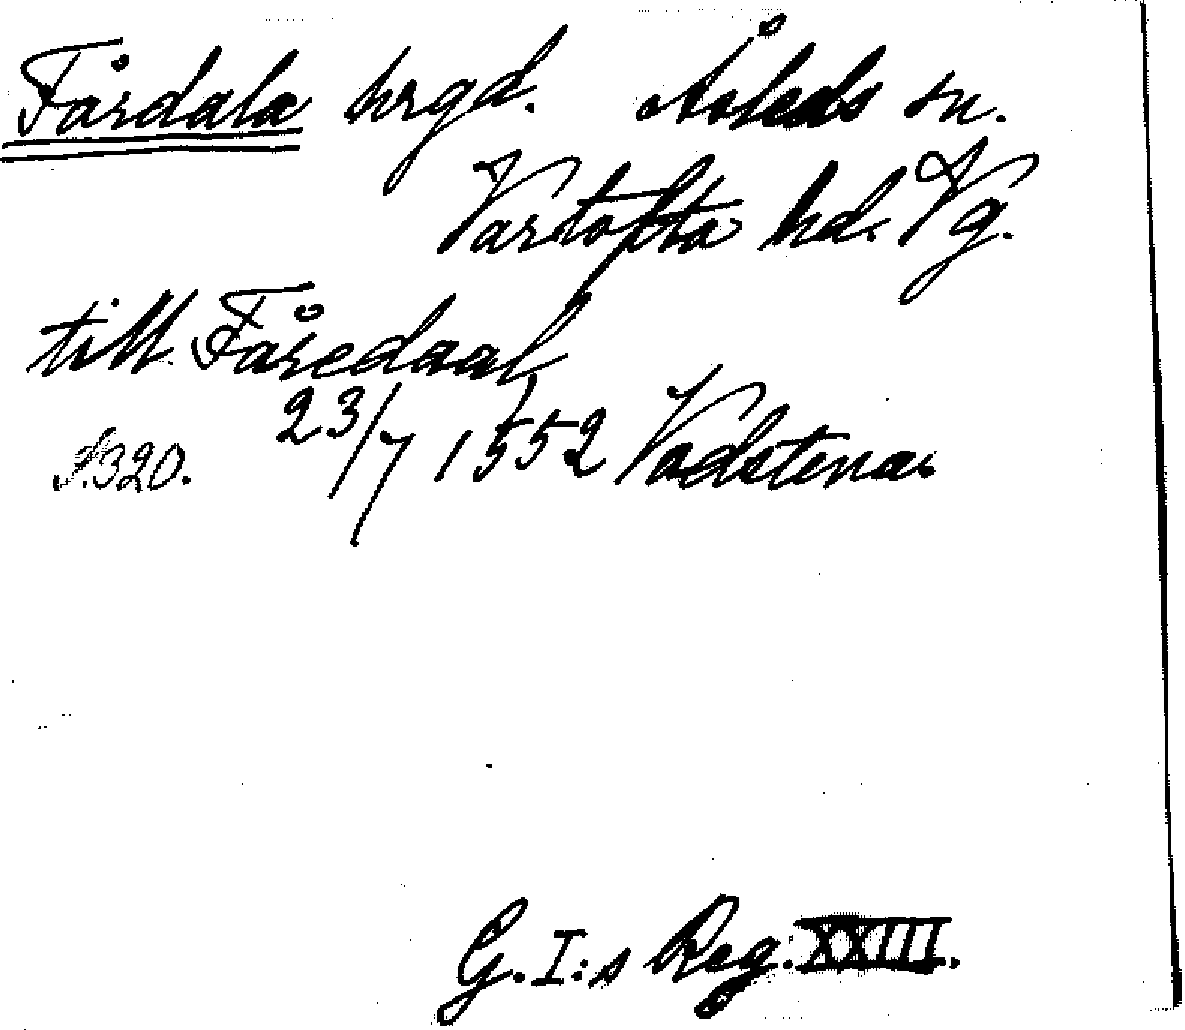 Fårdala hrgd. Åsleds sn.
Vartofta hd. Vg.
till Fåredaal
S.320. 23/7 1552 Vadstena.
G. I:s Reg. XXIII.